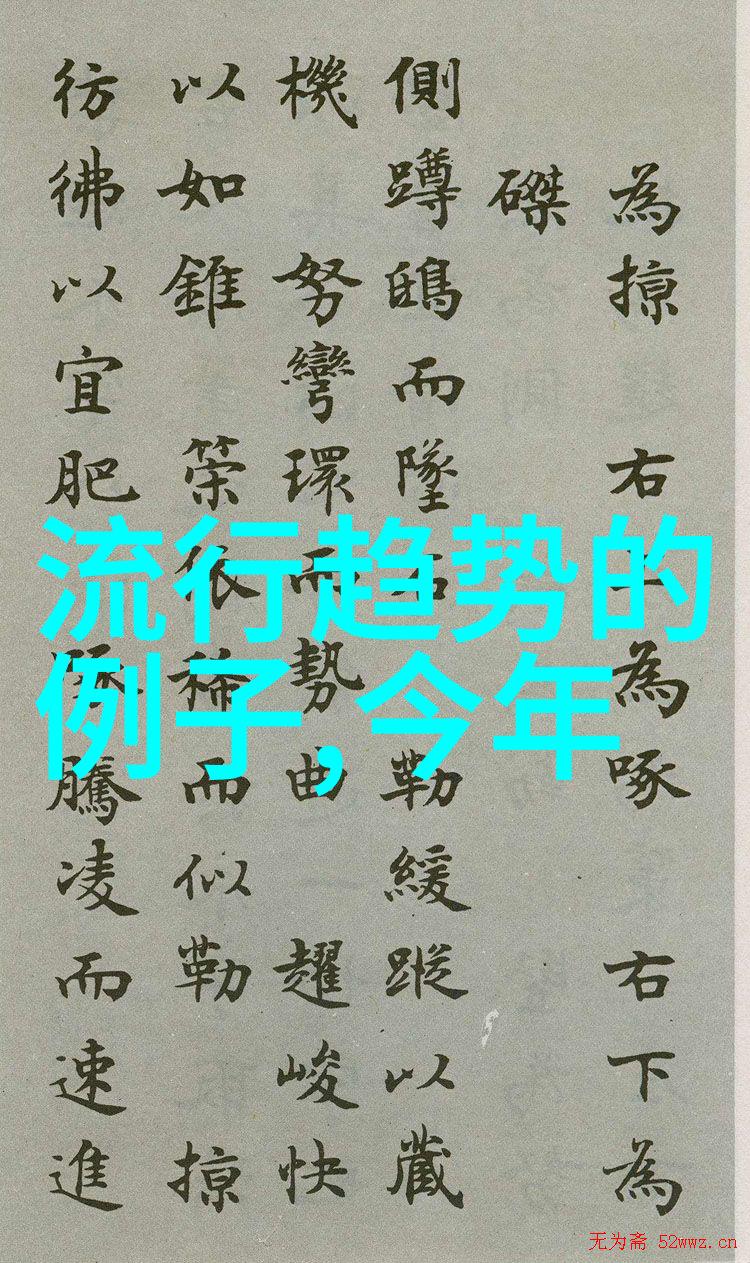 為掠 右上為啄 右下為
磔
側蹲鴟而墜石 勒緩蹤以藏
機 努彎環而勢曲 趯峻快
以如錐 策依稀而似勒 掠
彷彿以宜肥 啄騰凌而速進
流行趋势的
例子,今年
无为斋 52wwz.cn